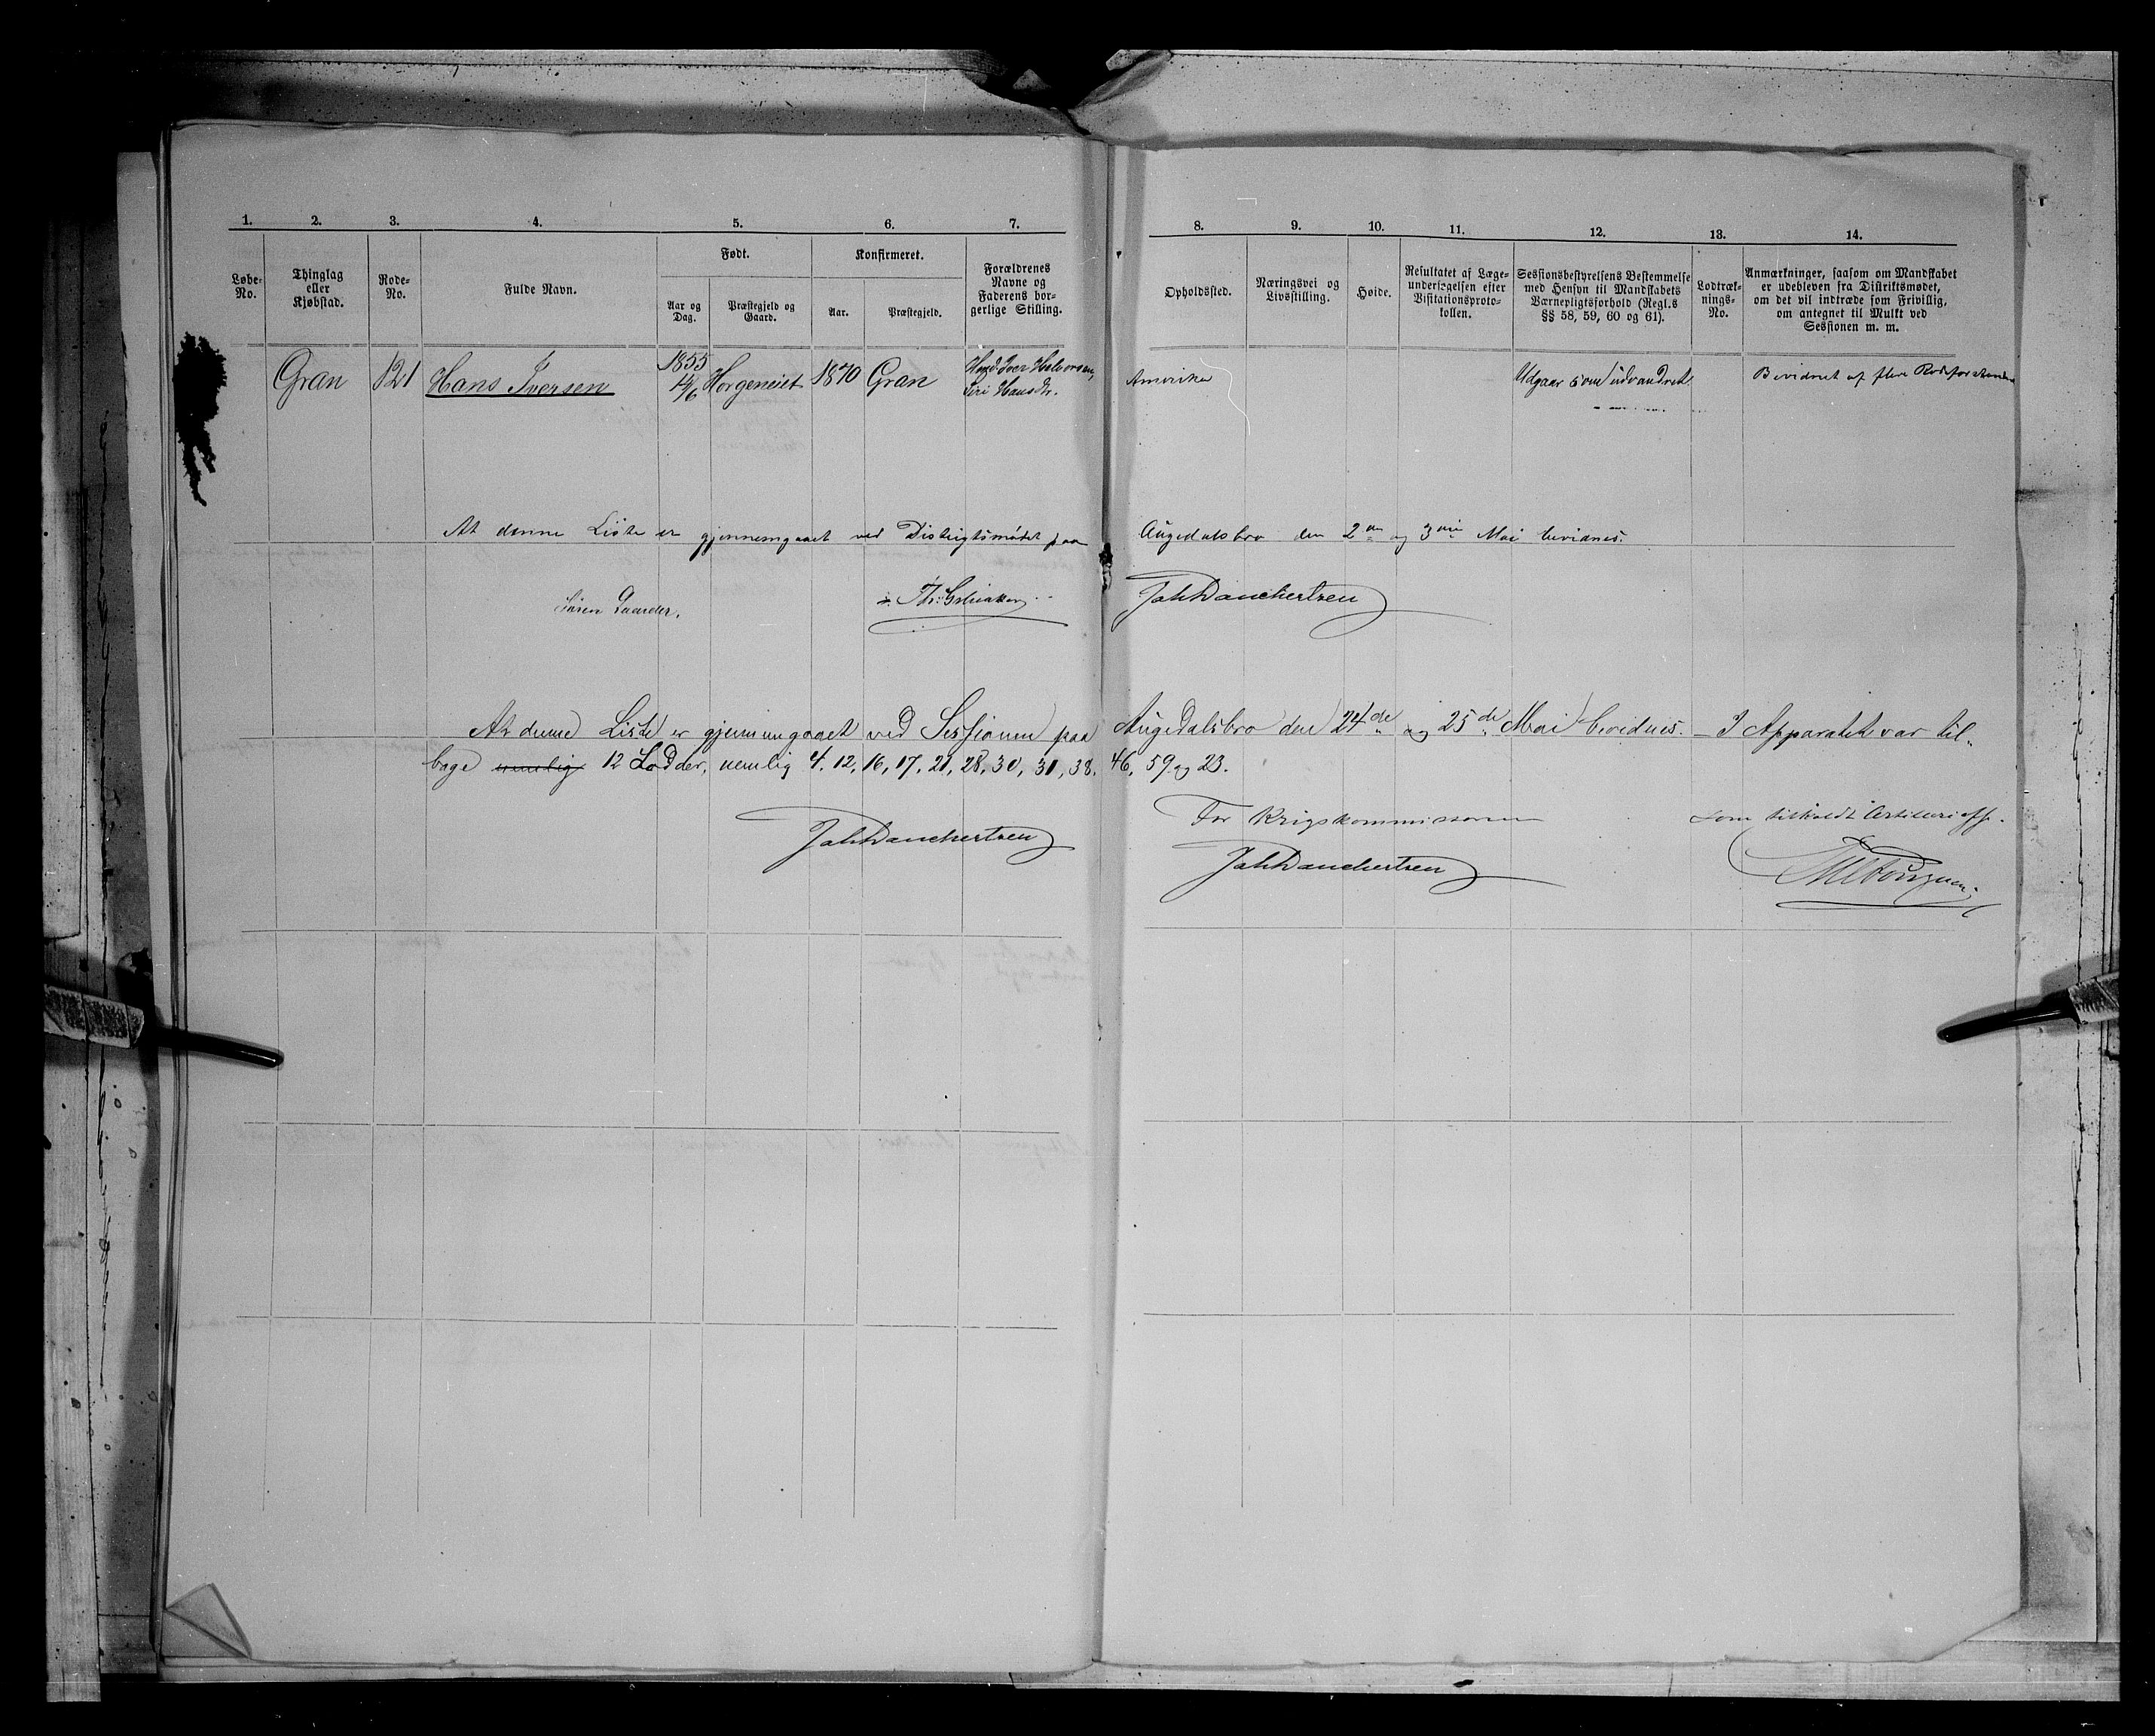 1. 2. 3. 4. 5. 6. 7. 8. 9. 10. 11. 12. 13. 14.
Løbe-No.
Thinglag eller Kjøbstad.
Rode-No.
Fulde Navn.
Født.
Aar og Dag.
Præstegjeld og Gaard.
Konfirmeret.
Aar.
Præstegjeld.
Forældrenes Navne og Faderens borgerlige Stilling.
Opholdssted.
Næringsvei og Livsstilling.
Høide.
Resultatet af Lægeundersøgelsen efter Visitationsprotokollen.
Sessionsbestyrelsens Bestemmelse med Hensyn til Mandskabets Værnepligtsforhold (Regl.s §§ 58, 59, 60 og 61).
Lodtræknings-No.
Anmærkninger, saasom om Mandskabet er udebleven fra Distriktsmødet, om det vil indtræde som Frivillig, om antegnet til Mulkt ved Sessionen m. m.
Gran 121 Hans Iversen 1855 Horgeneiet 1870 Gran Iver Halvorsen, Siri Hansdr. Amerika Udgaar som udvandret. Bevidnet af flere
At denne Liste er gjennemgaaet ved Distrigtsmødet paa Augedalsbro den 2den og 3die Mai bevidnes.
Søren Gaarder.
At denne Liste er gjennemgaaet ved Sessionen paa Augedalsbro den 24de og 25de Mai bevidnes. - I Apparatet var til-
bage nemlig 12 Lodder, nemlig 4, 12, 16, 17, 21, 28, 30, 31, 38, 46, 59 og 23.
For Krigskommissæren
Som tilkaldt Artillerioff.